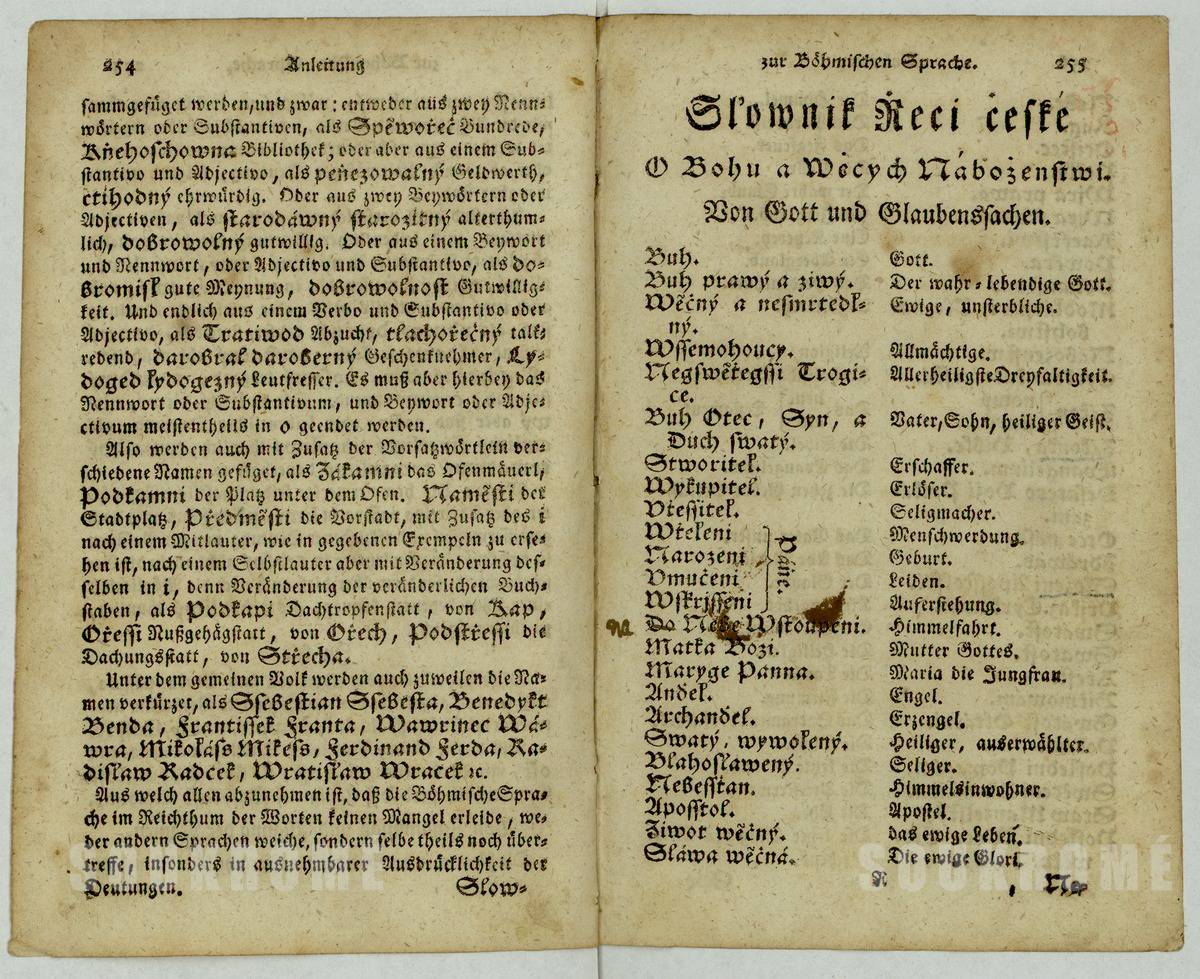 254 Anleitung
sammgefüget werden, und zwar: entweder aus zwey Nenn-
wörtern oder Substantiven, als Spěwořeč Bundrede,
Kněhoschowna Bibliothek; oder aber aus einem Sub-
stantivo und Adjectivo, als peňezowalný Geldwerth,
ctihodný ehrwürdig. Oder aus zwey Beywörtern oder
Adjectiven, als starodáwný starožitný alterthum-
lich, dobrowolný gutwillig. Oder aus einem Beywort
und Nennwort, oder Adjectivo und Substantivo, als do-
bromisl gute Meynung, dobrowolnost Gutwillig-
keit. Und endlich aus einem Verbo und Substantivo oder
Adjectivo, als Tratiwod Abzucht, tlachořečný talk-
redend, darobral daroberný Geschenknehmer, Ly-
doged lydogezný Leutfresser. Es muß aber hierbey das
Nennwort oder Substantivum, und Beywort oder Adje-
ctivum meistentheils in o geendet werden.
Also werden auch mit Zusatz der Vorsatzwörtlein ver-
schiedene Namen gefüget, als Zákamni das Ofenmäuerl,
Podkamni der Platz unter dem Ofen. Naměsti der
Stadtplatz, Předměsti die Vorstadt, mit Zusatz des i
nach einem Mitlauter, wie in gegebenen Exempeln zu erse-
hen ist, nach einem Selbstlauter aber mit Veränderung des-
selben in i, denn Veränderung der veränderlichen Buch-
staben, als Podkapi Dachtropfenstatt, von Kap,
Ořessi Nußgehägstatt, von Ořech, Podstřessi die
Dachungsstatt, von Střecha.
Unter dem gemeinen Volk werden auch zuweilen die Na-
men verkürzet, als Ssebestian Ssebesta, Benedykt
Benda, Frantissek Franta, Wawrinec Wá-
wra, Mikoláss Mikess, Ferdinand Ferda, Ra-
dislaw Radček, Wratislaw Wracek ꝛc.
Aus welch allen abzunehmen ist, daß die Böhmische Spra-
che im Reichthum der Worten keinen Mangel erleide, we-
der andern Sprachen weiche, sondern selbe theils noch über-
treffe, insonders in ausnehmbarer Ausdrücklichkeit der
Deutungen. Slow-
zur Böhmischen Sprache. 255
Slownik Řeči české
O Bohu a Wěcych Náboženstwi.
Von Gott und Glaubenssachen.
Buh. Gott.
Buh prawý a živý. Der wahr-lebendige Gott.
Wěčný a nesmrtedl- Ewige, unsterbliche.
ný.
Wssemohoucy. Allmächtige.
Negswětegssi Trogi- Allerheiligste Dreyfaltigkeit.
ce.
Buh Otec, Syn, a Vater, Sohn, heiliger Geist.
Duch swatý.
Stworitel. Erschaffer.
Wykupitel. Erlöser.
Vtessitel. Seligmacher.
Wtěleni Menschwerdung.
Narozeni Páně. Geburt.
Vmučeni Leiden.
Wskrjsseni Auferstehung.
na Do Nebe Wstoupeni. Himmelfahrt.
Matka Boži. Mutter Gottes.
Maryge Panna. Maria die Jungfrau.
Anděl. Engel.
Archanděl. Erzengel.
Swatý, wywolený. Heiliger, auserwählter.
Blahoslawený. Seliger.
Nebesstan. Himmelsinwohner.
Aposstol. Apostel.
Život wěčný. das ewige Leben.
Sláwa wěčná. Die ewige Glori.
R Ne-